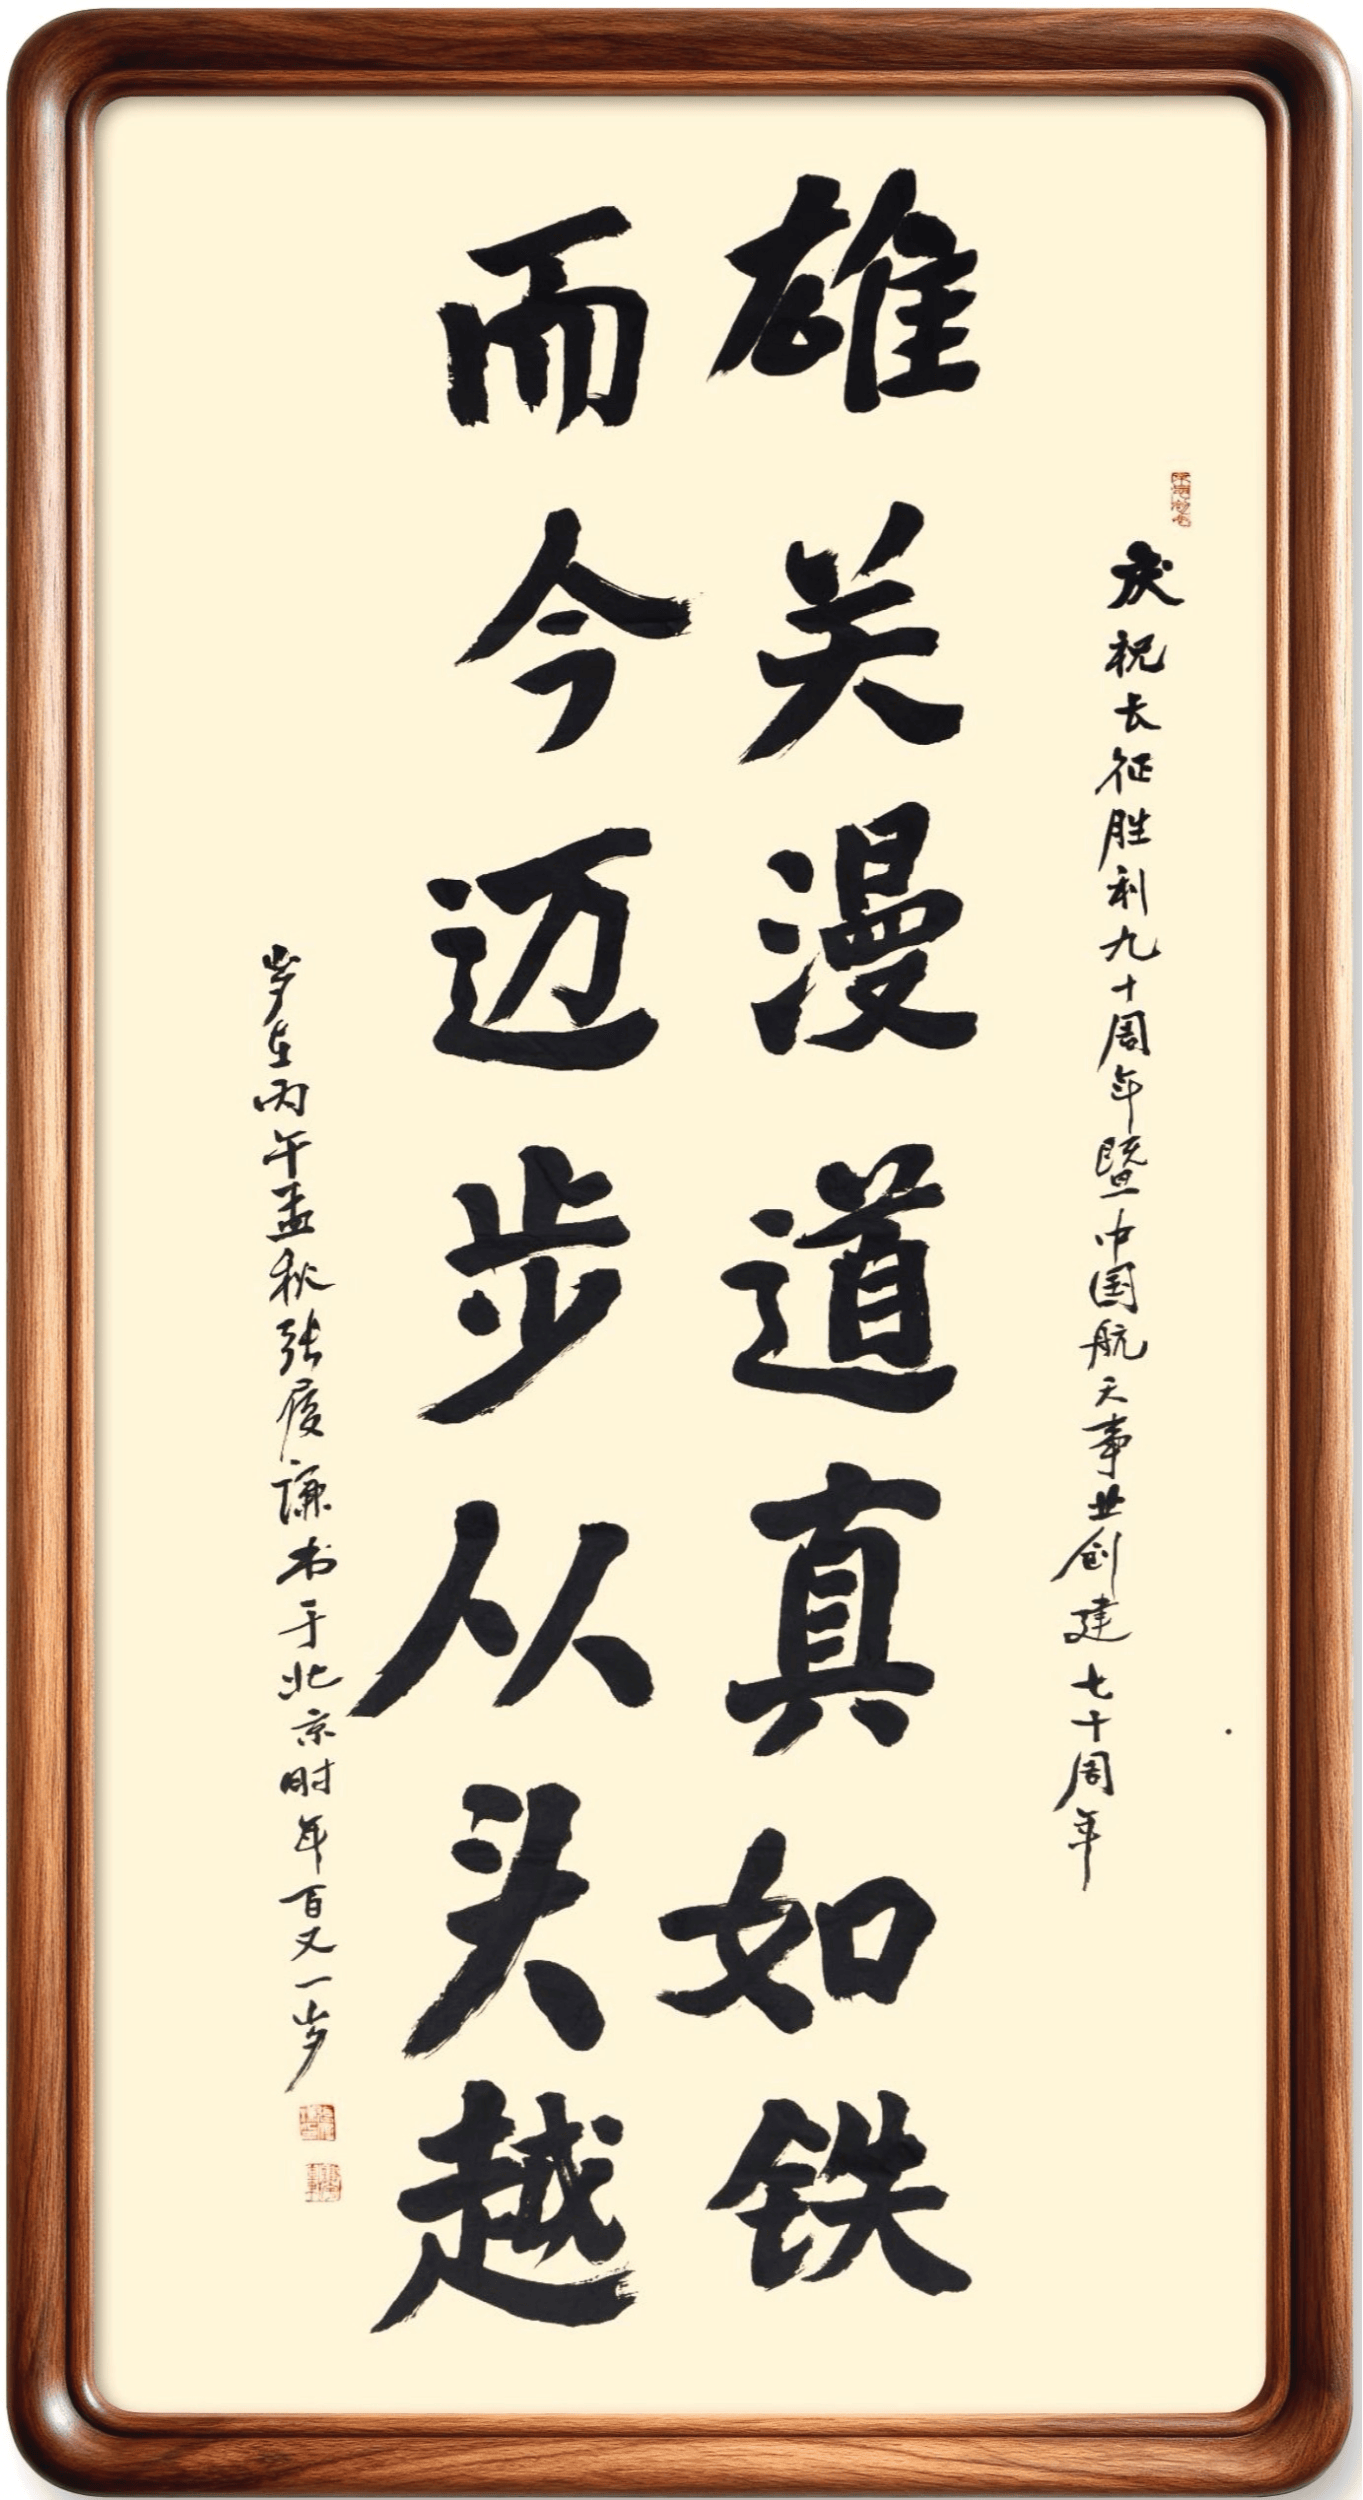 庆祝长征胜利九十周年暨中国航天事业创建七十周年
雄关漫道真如铁
而今迈步从头越
岁在丙午孟秋张履谦书于北京时年百又一岁